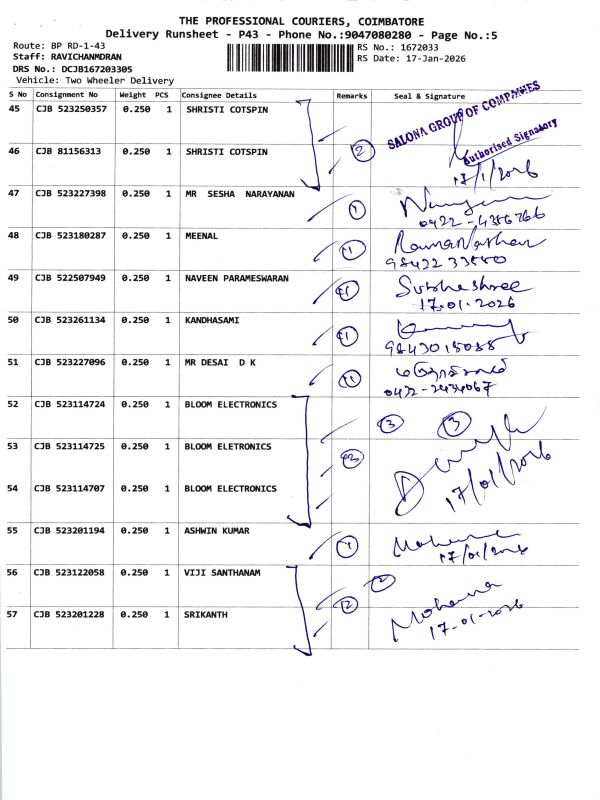 THE PROFESSIONAL COURIERS, COIMBATORE
Delivery Runsheet - P43 - Phone No.:9047080280 - Page No.:5
Route: BP RD-1-43
RS No.: 1672033
Staff: RAVICHANMDRAN
RS Date: 17-Jan-2026
DRS No.: DCJB167203305
Vehicle: Two Wheeler Delivery
S No Consignment No Weight PCS Consignee Details Remarks Seal & Signature
45 CJB 523250357 0.250 1 SHRISTI COTSPIN
SALONA GROUP OF COMPANIES
Authorised Signatory
46 CJB 81156313 0.250 1 SHRISTI COTSPIN 2
17/1/2026
47 CJB 523227398 0.250 1 MR SESHA NARAYANAN 1
0422-4356766
48 CJB 523180287 0.250 1 MEENAL 1
98422 33550
49 CJB 522507949 0.250 1 NAVEEN PARAMESWARAN 1 Subhashree
17.01.2026
50 CJB 523261134 0.250 1 KANDHASAMI 1
9843015088
51 CJB 523227096 0.250 1 MR DESAI D K 1
0422-2434067
52 CJB 523114724 0.250 1 BLOOM ELECTRONICS 3 3
53 CJB 523114725 0.250 1 BLOOM ELETRONICS 3
17/01/2026
54 CJB 523114707 0.250 1 BLOOM ELECTRONICS
55 CJB 523201194 0.250 1 ASHWIN KUMAR 1 Mohana
17/01/2026
56 CJB 523122058 0.250 1 VIJI SANTHANAM 2
57 CJB 523201228 0.250 1 SRIKANTH 2 Mohana
17-01-2026